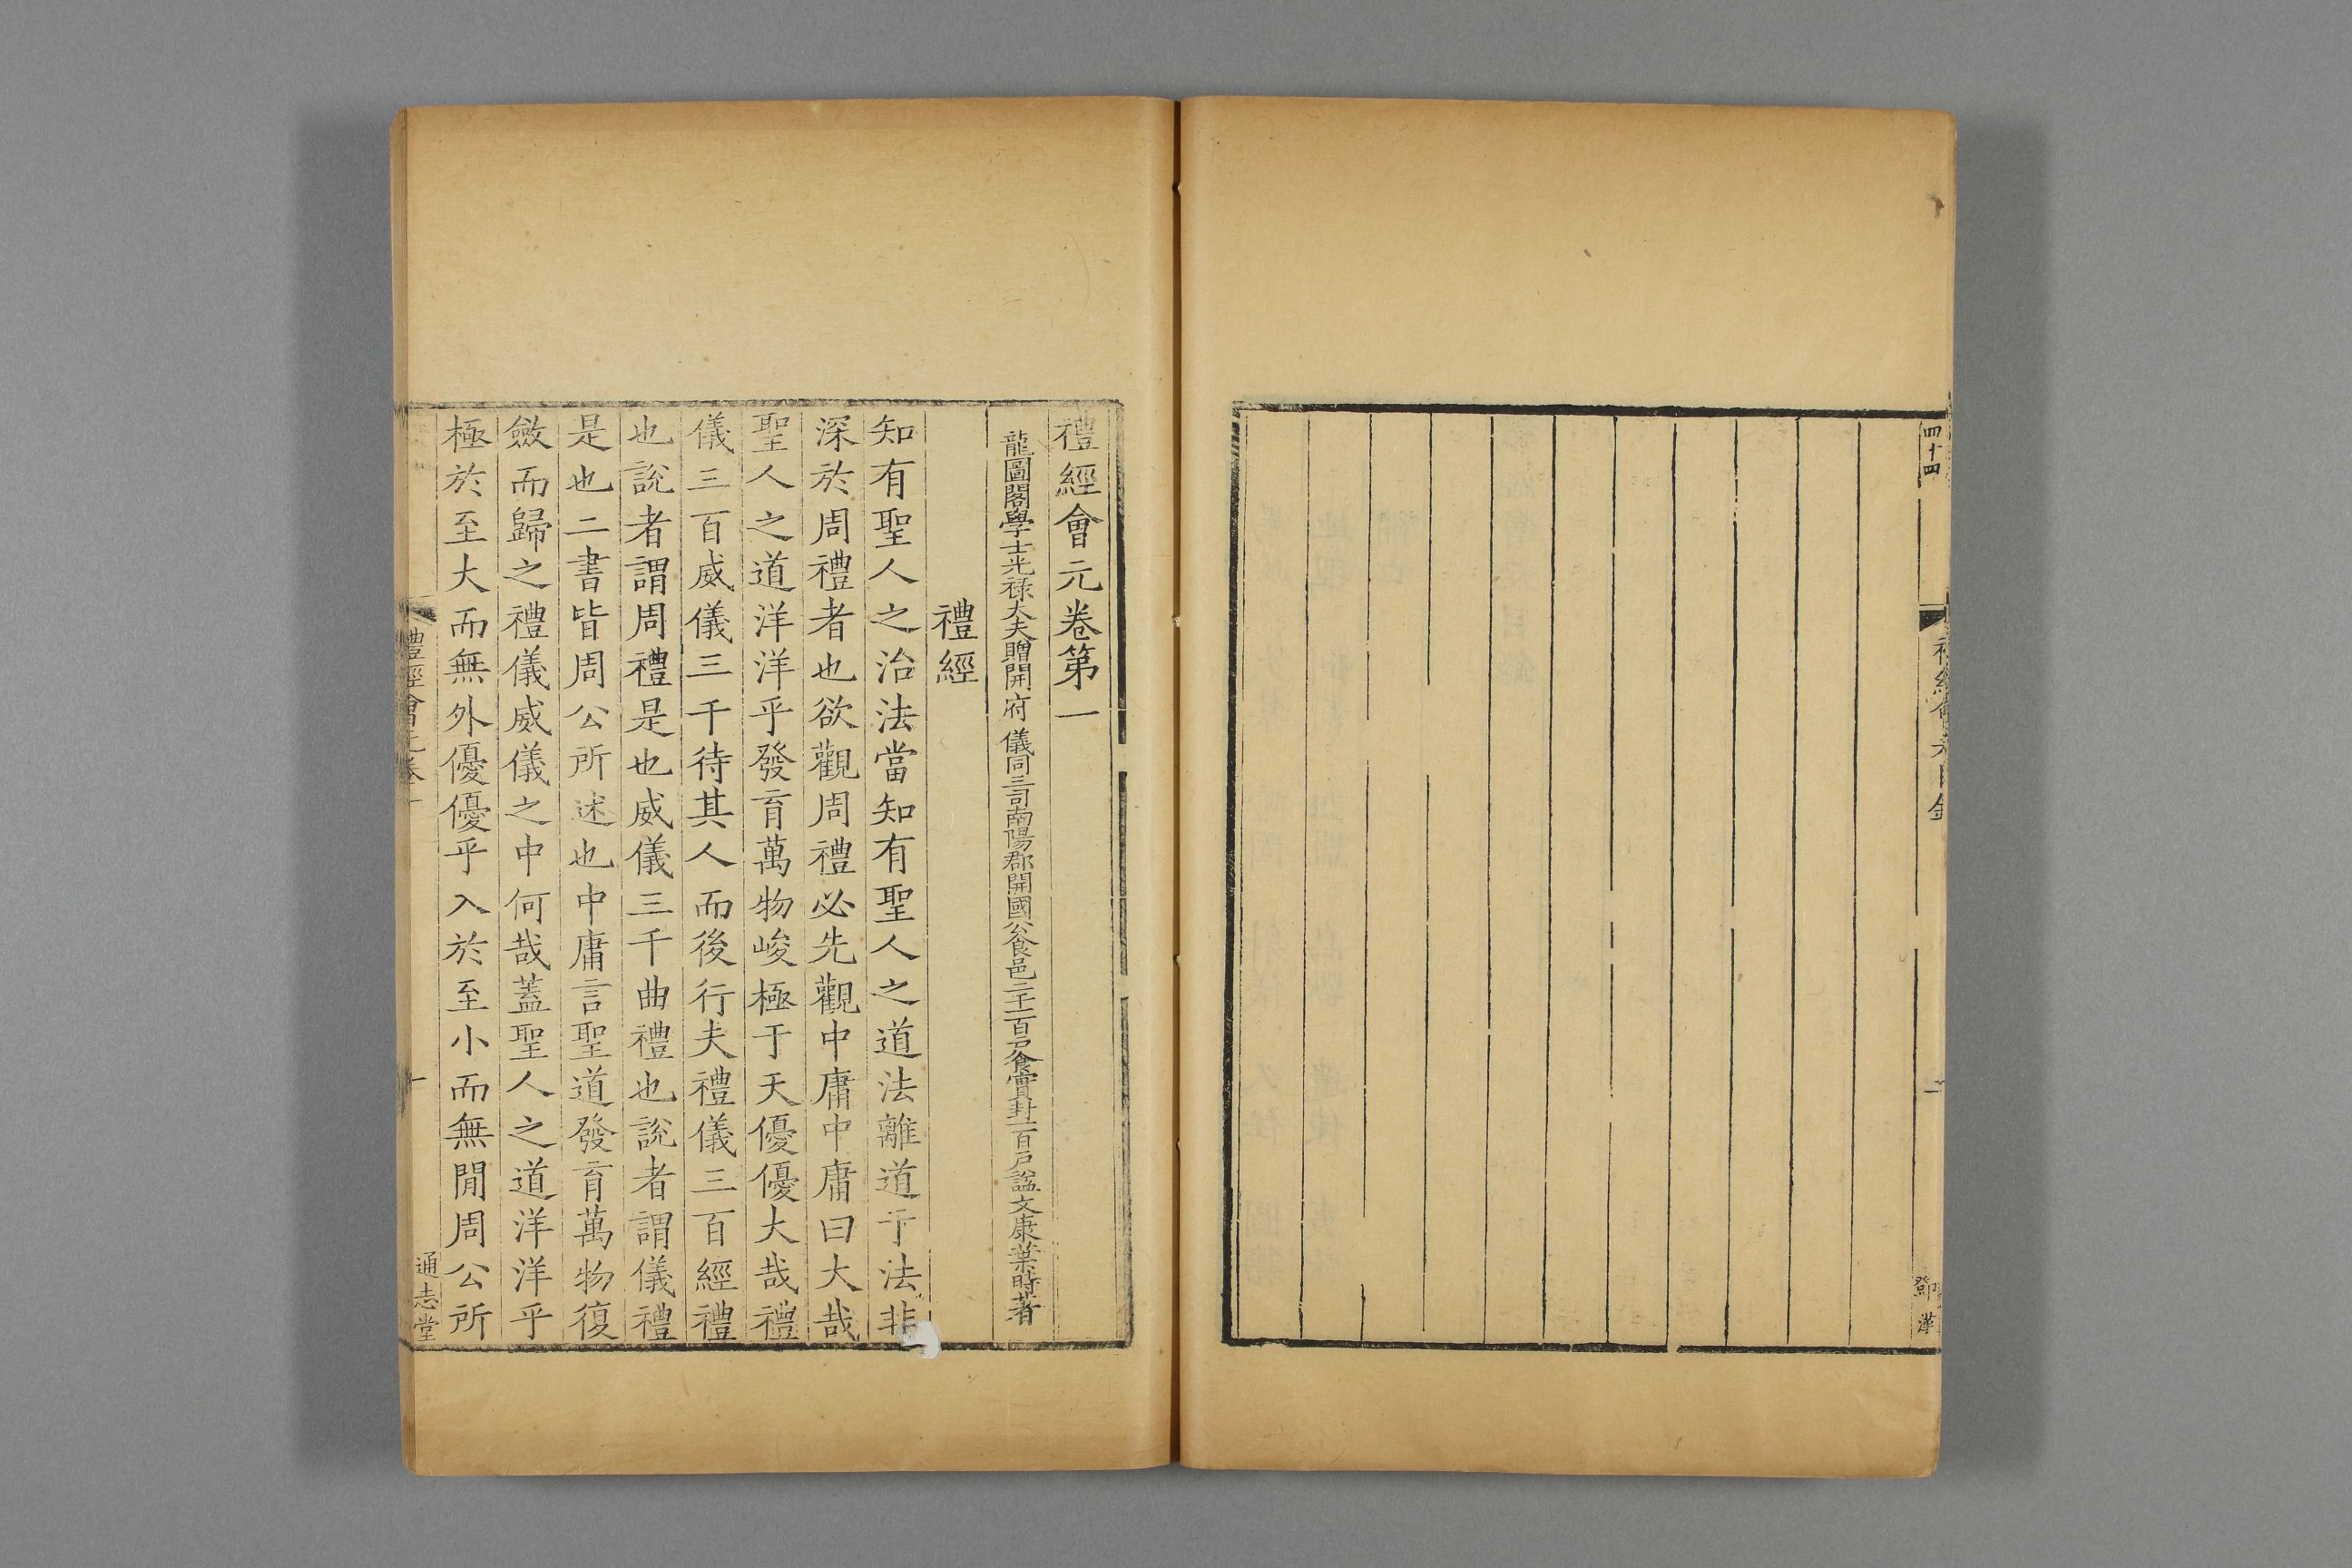 四十四
鄧漢
禮經會元卷第一
龍圖閣學士光祿大夫贈開府儀同三司南陽郡開國公食邑二千二百戶食實封二百戶諡文康葉時著
禮經
知有聖人之治法當知有聖人之道法離道于法非
深於周禮者也欲觀周禮必先觀中庸中庸曰大哉
聖人之道洋洋乎發育萬物峻極于天優優大哉禮
儀三百威儀三千待其人而後行夫禮儀三百經禮
也說者謂周禮是也威儀三千曲禮也說者謂儀禮
是也二書皆周公所述也中庸言聖道發育萬物復
斂而歸之禮儀威儀之中何哉蓋聖人之道洋洋乎
極於至大而無外優優乎入於至小而無閒周公所
禮經會元卷一
一
通志堂